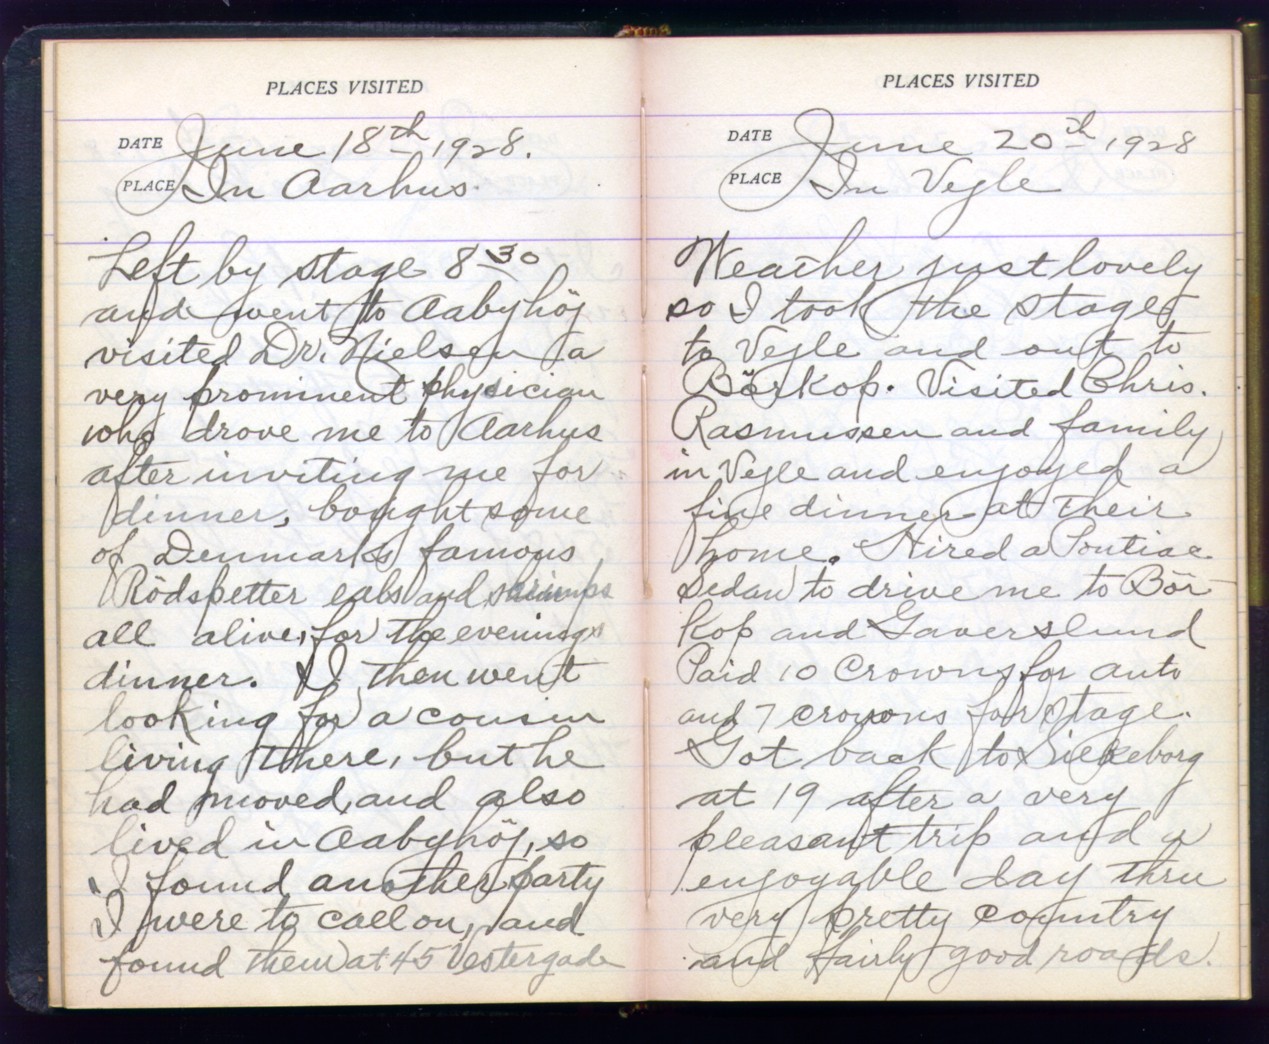 PLACES VISITED
DATE June 18th 1928.
PLACE In Aarhus.
Left by stage 8 30
and went to Aabyhöj
visited Dr. Nielsen a
very prominent physician
who drove me to Aarhus
after inviting me for
dinner, bought some
of Denmarks famous
Rödspetter eels and shrimps
all alive, for the evenings
dinner. I then went
looking for a cousin
living there, but he
had moved, and also
lived in Aabyhöj, so
I found another party
I were to call on, and
found them at 45 Vestergade
PLACES VISITED
DATE June 20th 1928
PLACE In Vejle
Weather just lovely
so I took the stage
to Vejle and out to
Börkop. Visited Chris.
Rasmussen and family
in Vejle and enjoyed a
fine dinner at their
home. Hired a Pontiac
Sedan to drive me to Bör
kop and Gaverslund
Paid 10 Crowns for auto
and 7 crowns for stage.
Got back to Silkeborg
at 19 after a very
pleasant trip and a
enjoyable day thru
very pretty country
and fairly good roads.